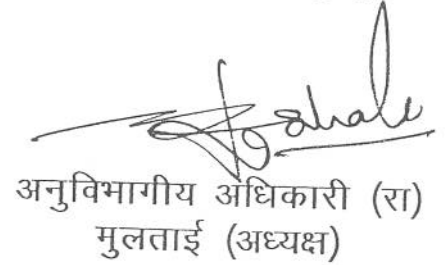 अनुविभागीय अधिकारी (रा)
मुलताई (अध्यक्ष)